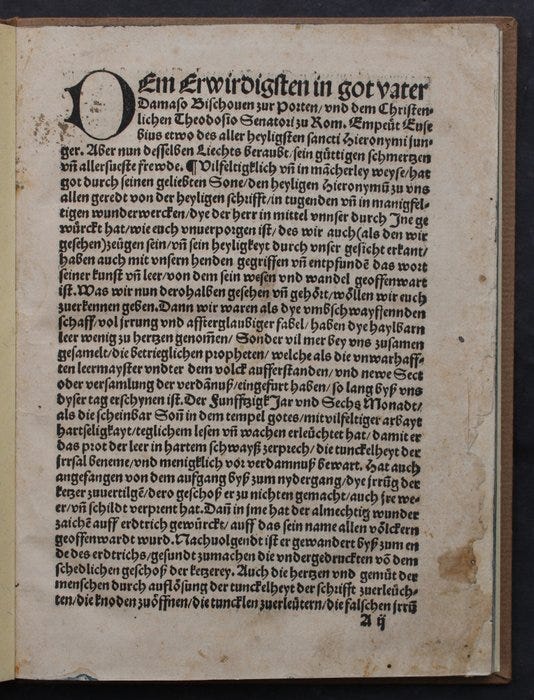 DEm Erwirdigsten in got vater
Damaso Bischouen zur Porten/vnd dem Christen-
lichen Theodosio Senatori zu Rom. Empeut Euse
bius etwo des aller heyligsten sancti Hieronymi jun-
ger. Aber nun desselben Liechts beraubt/sein güttigen schmertzen
vn̄ allersueste frewde. ¶ Vilfeltigklich vn̄ in mācherley weyse/hat
got durch seinen geliebten Sone/den heyligen Hieronymū zu vns
allen geredt von der heyligen schrifft/in tugenden vn̄ in manigfel-
tigen wunderwercken/dye der herr in mittel vnnser durch Jne ge
würckt hat/wie euch vnuerporgen ist/des wir auch(als den wir
gesehen)zeügen sein/vn̄ sein heyligkeyt durch vnser gesicht erkant/
haben auch mit vnsern henden gegriffen vn̄ entpfundē das wort
seiner kunst vn̄ leer/von dem sein wesen vnd wandel geoffenwart
ist. Was wir nun derohalben gesehen vn̄ gehört/wöllen wir euch
zuerkennen geben. Dann wir waren als dye vmbschwayffennden
schaff/vol jrrung vnd affterglaubiger fabel/haben dye haylbarn
leer wenig zu hertzen genomē/ Sonder vil mer bey vns zusamen
gesamelt/die betrieglichen propheten/welche als die vnwarhaff-
ten leermayster vndter dem volck aufferstanden/vnd newe Sect
oder versamlung der verdānuß/eingefurt haben/so lang byß vns
dyser tag erschynen ist. Der Funfftzigk Jar vnd Sechs Monadt/
als die scheinbar Son̄ in dem tempel gotes/mit vilfeltiger arbayt
hartseligkayt/teglichem lesen vn̄ wachen erleüchtet hat/damit er
das prot der leer in hartem schwayß zerprech/die tunckelheyt der
jrrsal beneme/vnd menigklich vor verdamnuß bewart. Hat auch
angefangen von dem aufgang byß zum nydergang/dye jrrūg der
ketzer zuuertilgē/dero geschoß er zu nichten gemacht/auch jre we-
er/vn̄ schildt verprent hat. Dan̄ in jme hat der almechtig wunder
zaichē auff erdtrich gewürckt/ auff das sein name allen völckern
geoffenwardt wurd. Nachuolgendt ist er gewandert byß zum en
de des erdtrichs/gesundt zumachen die vndergedruckten vō dem
schedlichen geschoß der ketzerey. Auch die hertzen vnd gemüt der
menschen durch auflösung der tunckelheyt der schrifft zuerleüch-
ten/die knoden zuöffnen/die tuncklen zuerleütern/die falschen jrrū
A ij